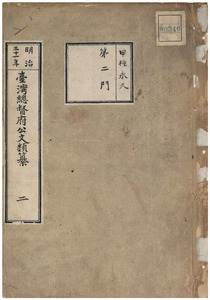 甲種永久
第二門
明治
三十一年
臺灣總督府公文類纂
二